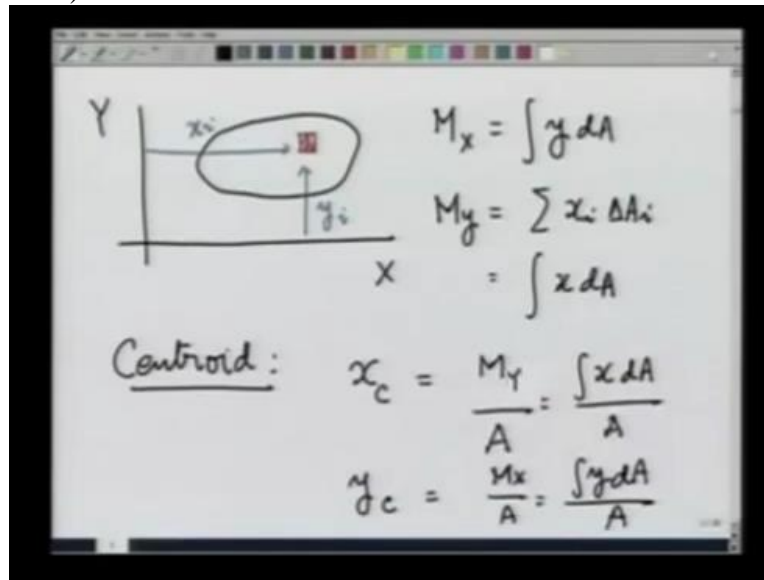 Y
xᵢ
yᵢ
X
M_x = ∫ y dA
M_y = ∑ xᵢ ΔAᵢ
= ∫ x dA
Centroid :
x_c = M_Y / A = ∫ x dA / A
y_c = M_x / A = ∫ y dA / A